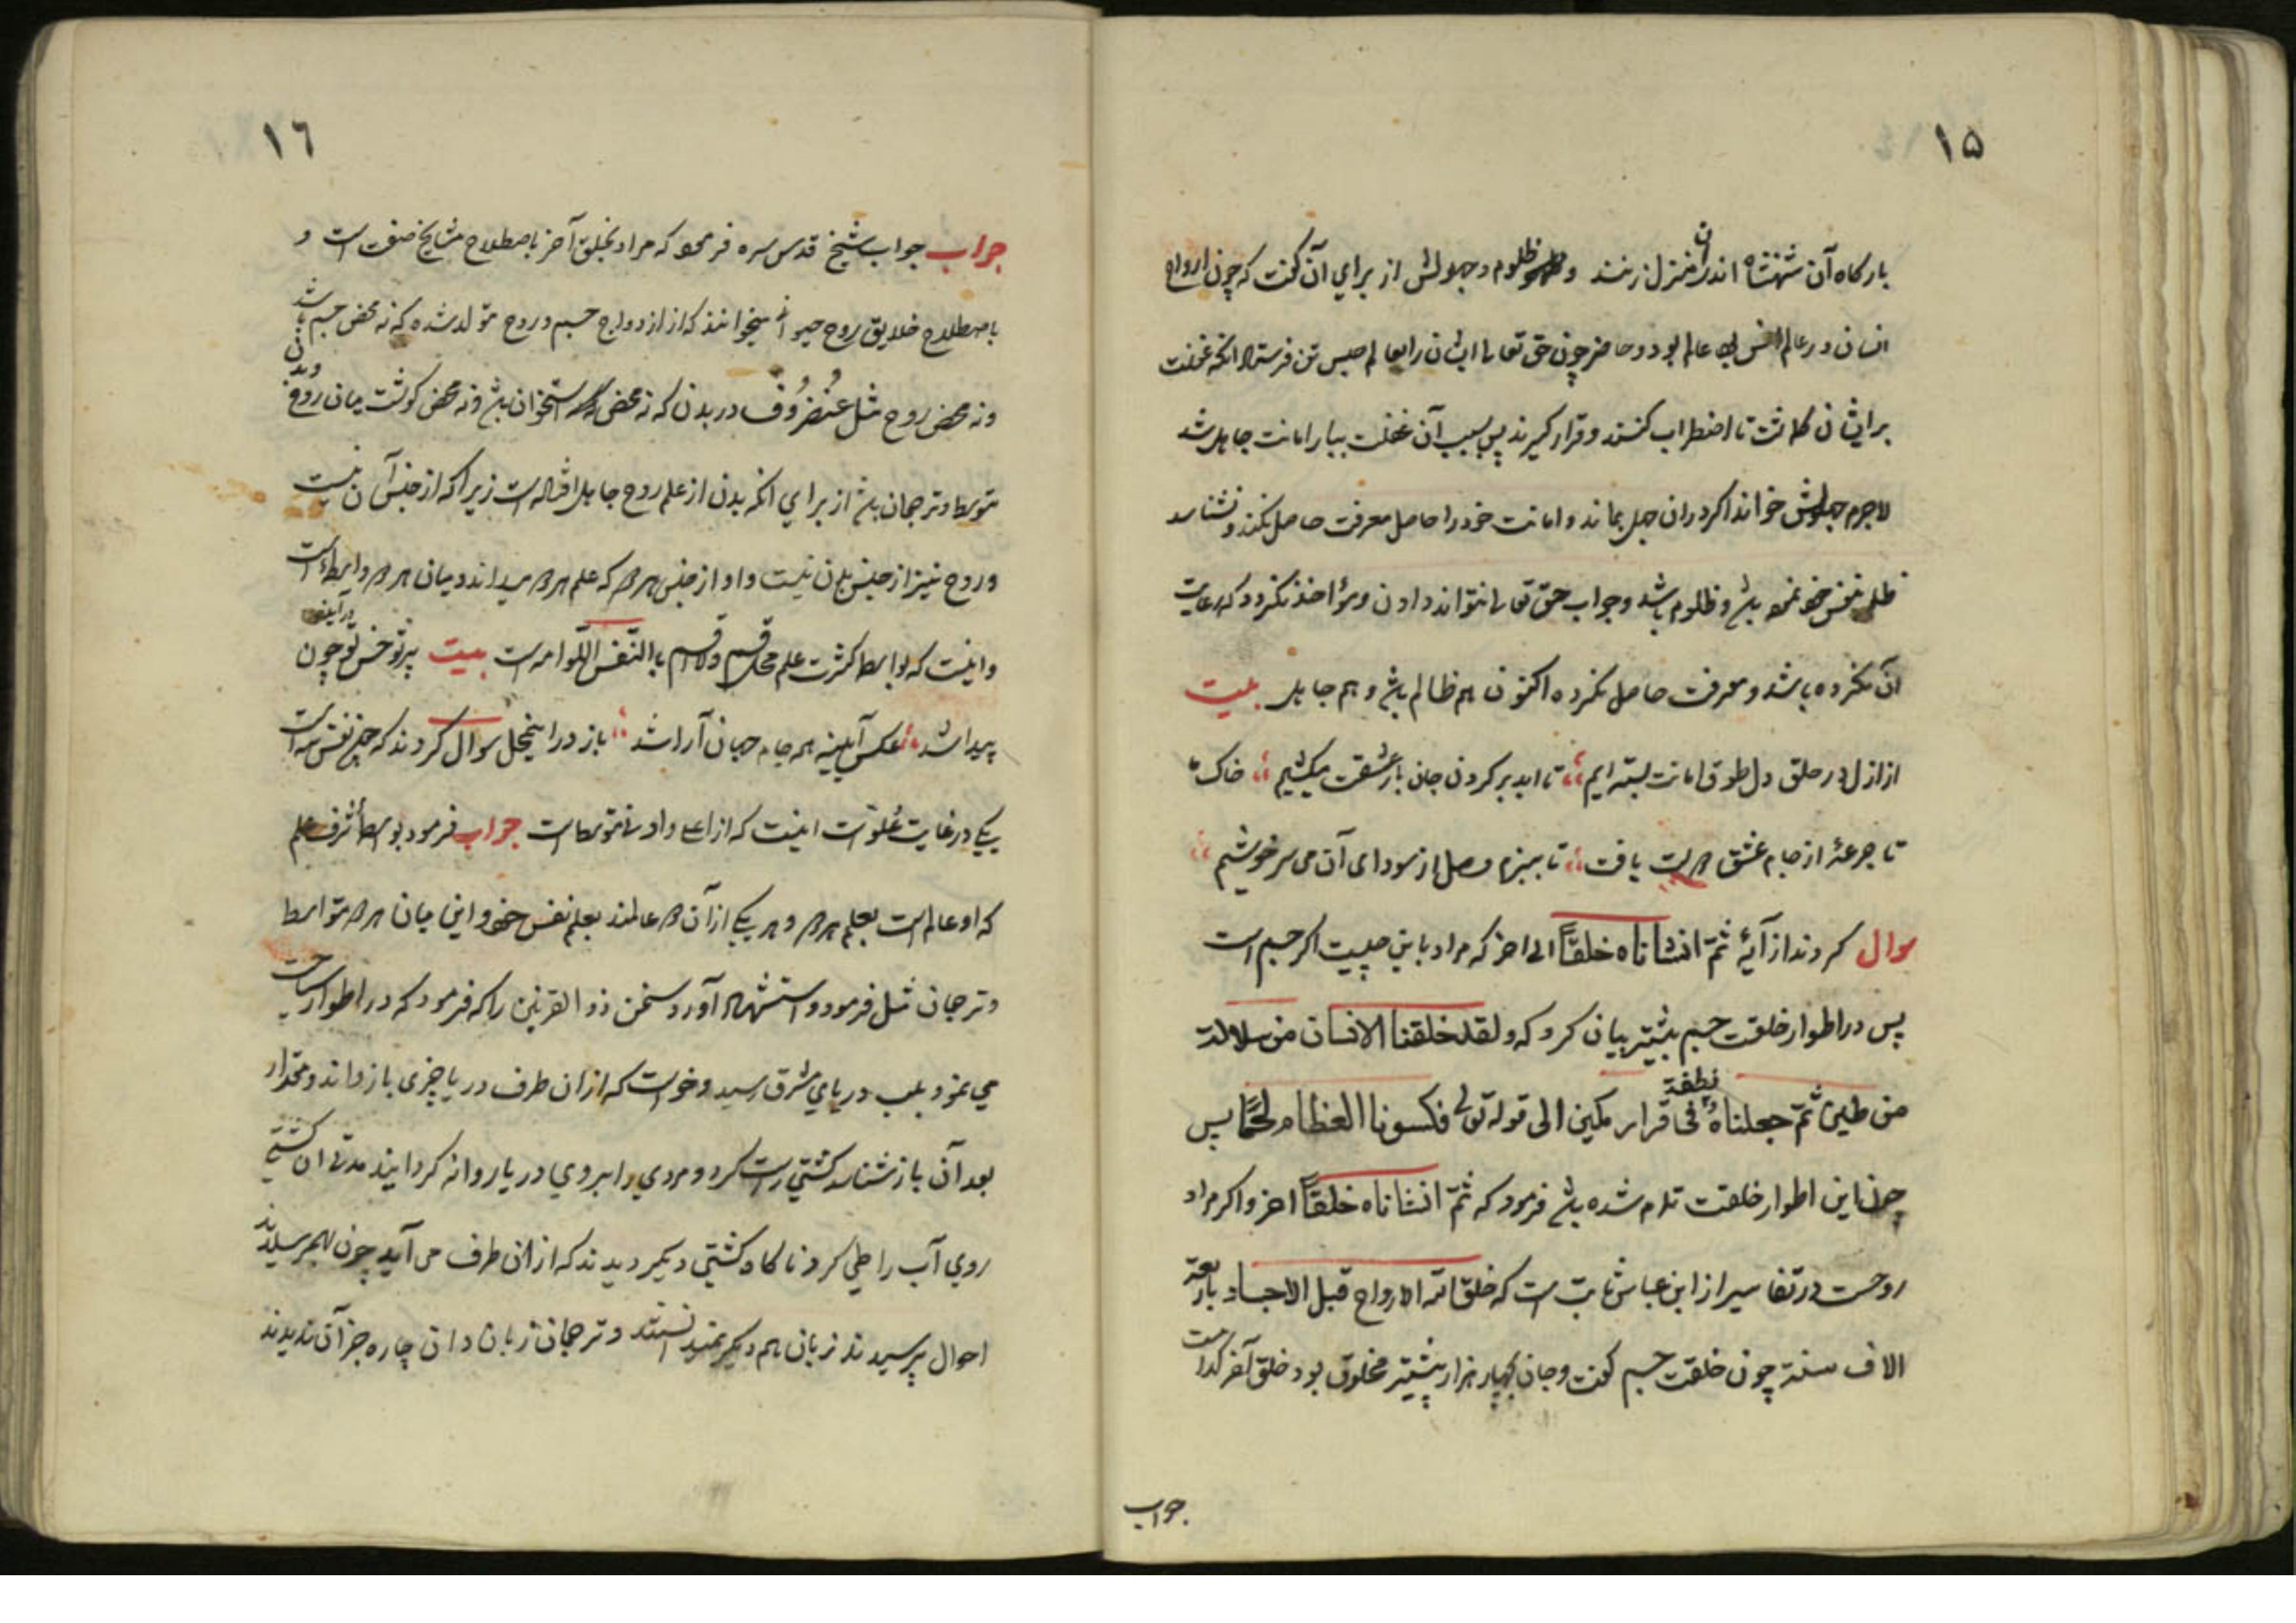 ١٥
بارکاه آن شهنشاه اندران منزل زنند و ظلوم و جهولش از برای آن گفت که چون ارواح
انسان در عالم انس بود و حاضر چون حق تعالی ایشان را بعالم حبس تن فرستاد انکه غفلت
برایشان کماشت تا اضطراب نکنند و قرار گیرند پس بسبب آن غفلت ببار امانت جاهل شد
لاجرم جهولش خواند اگر در ان جهل بماند و امانت خود را حاصل معرفت حاصل نکند و نشناسد
ظلم بنفس خود نموده باشد و ظلوم باشد و جواب حق تعالی نتواند دادن و مؤاخذ نگردد که رعایت
آن نکرده باشد و معرفت حاصل نکرده اکنون هم ظالم باشد و هم جاهل بیت
از ازل در حلق دل طوق امانت بسته ایم تا ابد بر گردن جان بار عشقت میکشیم خاک ما
تا جرعهٔ از جام عشق دوست یافت تا ببزم وصل از سودای آن می سرخوشیم
سوال کردند از آیهٔ ثمّ انشاناه خلقاً الی اخر که مراد باین چیست اگر جسم است
پس در اطوار خلقت جسم بیشتر بیان کرد که ولقد خلقنا الانسان من سلالة
من طین ثمّ جعلناهُ نطفة فی قرار مکین الی قوله تعالی فکسونا العظام لحماً پس
چون این اطوار خلقت تمام شده باشد فرمود که ثمّ انشاناه خلقاً اخر و اگر مراد
روحست در تفاسیر از ابن عباس ثابت است که خلق الله الارواح قبل الاجساد باربعة
الاف سنة چون خلقت جسم گفت و جان بچهار هزار پیشتر مخلوق بود خلق آخر کدامست
جواب
١٦
جواب جواب شیخ قدس سره فرمود که مراد بخلق آخر باصطلاح مشایخ صفت است و
باصطلاح خلایق روح حیوانی میخوانند که از ازدواج جسم و روح متولد شده که نه محض جسم باشد
و نه محض روح مثل غُضرُوف در بدن که نه محض استخوان باشد و نه محض گوشت میان روح و بدن
متوسط و ترجمان باشد از برای انکه بدن از علم روح جاهل افتاده است زیرا که از جنس آن نیست
و روح نیز از جنس بدن نیست و او از جنس هر دو که علم هر دو میداند و میان هر دو واسطه است
و اینست که بواسطه کثرت علم محل قسم ولا اقسم بالنّفس اللّوامه است بیت پرتو حسن تو چون در آینه
پیدا شد عکس آیینه همه جام جهان آرا شد باز در اینمحل سوال کردند که چون نفس سه است
یکی در غایت علو است اینست که از اعلی و ادنی متوسط است جواب فرمود بواسطه شرف علم
که او عالم است بعلم هر دو و هر یکی از آن دو عالمند بعلم نفس خود و این میان هر دو متواسط
و ترجمان مثل فرمود و استشهاد آورد سخن ذو القرنین را که فرمود که در اطوار سیاحت
می نمود بلب دریای مشرق رسید و خواست که ازان طرف دریا چیزی بازداند و مقدار
بعد آن باز شناسد کشتی راست کرد و مردی را بروی دریا روانه گردانید مدتی ان کشتی
روی آب را طی کرد ناگاه کشتی دیگر دیدند که ازان طرف می آید چون بهم رسیدند
احوال پرسیدند زبان هم دیگر نمیدانستند و ترجمان زبان دان چاره جز آن ندیدند